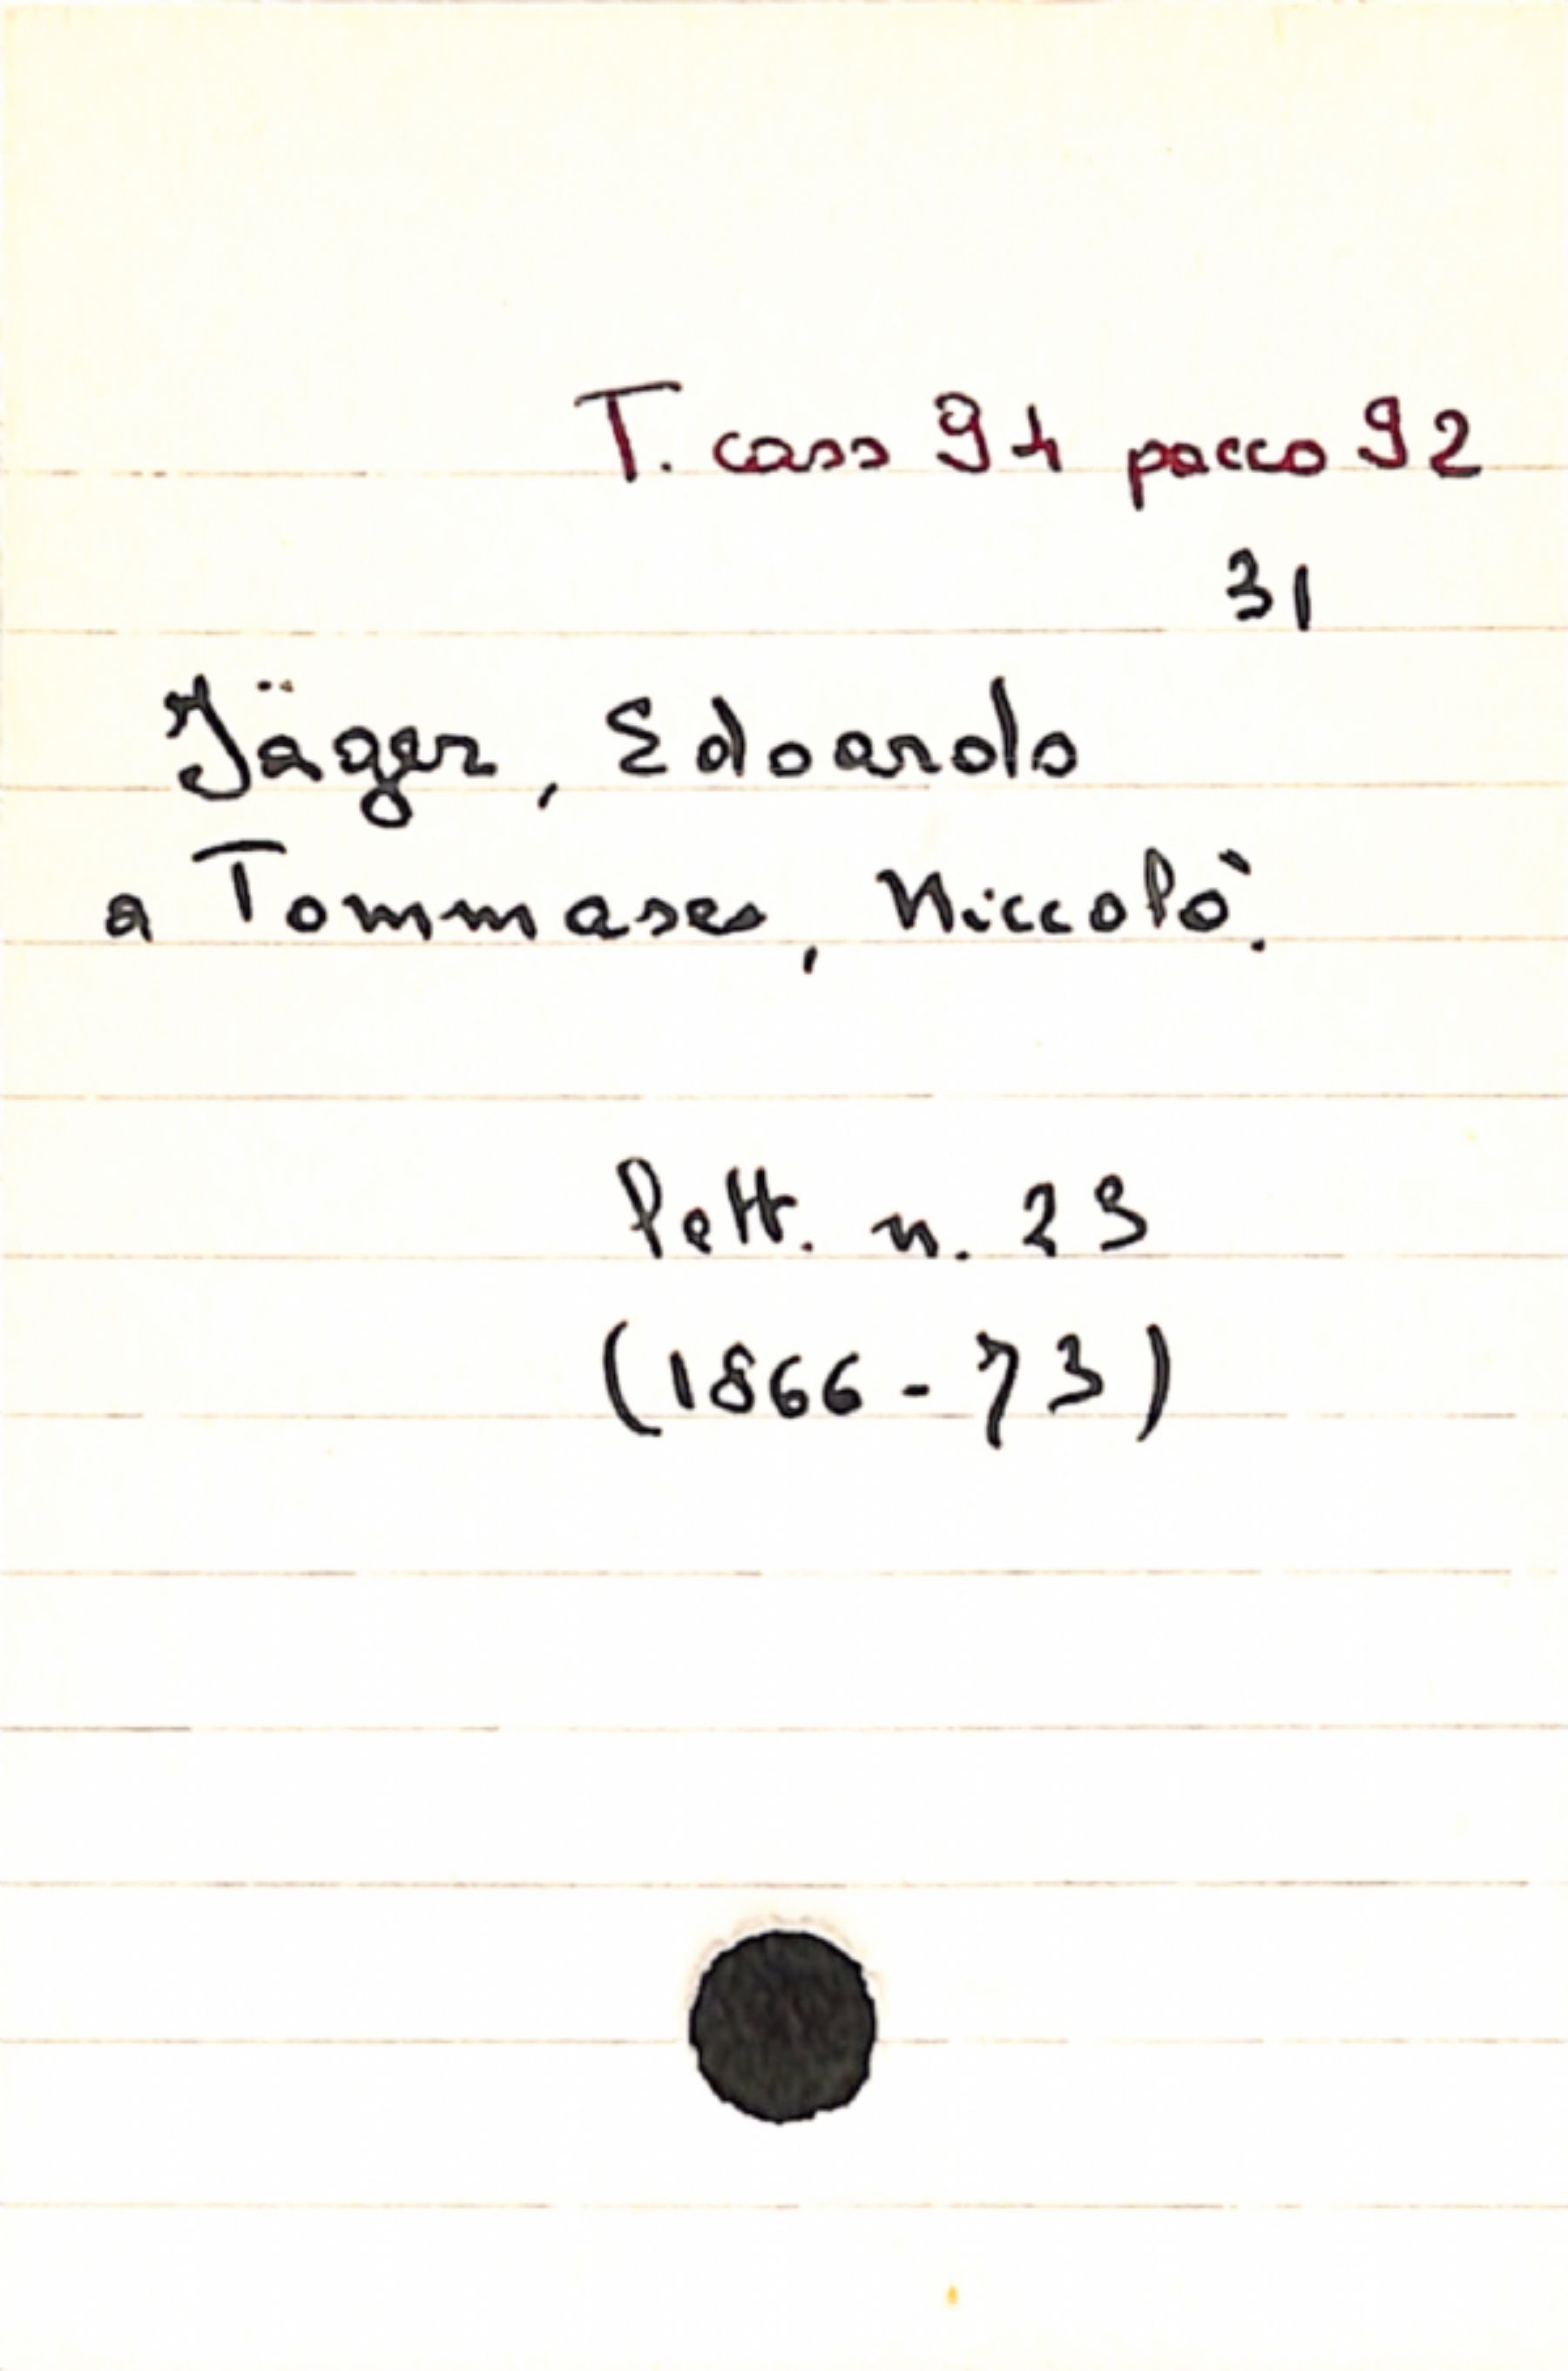 T. cass 94 pacco 92
31
Jäger, Edoardo
a Tommaseo, Niccolò.
lett. n. 23
(1866-73)